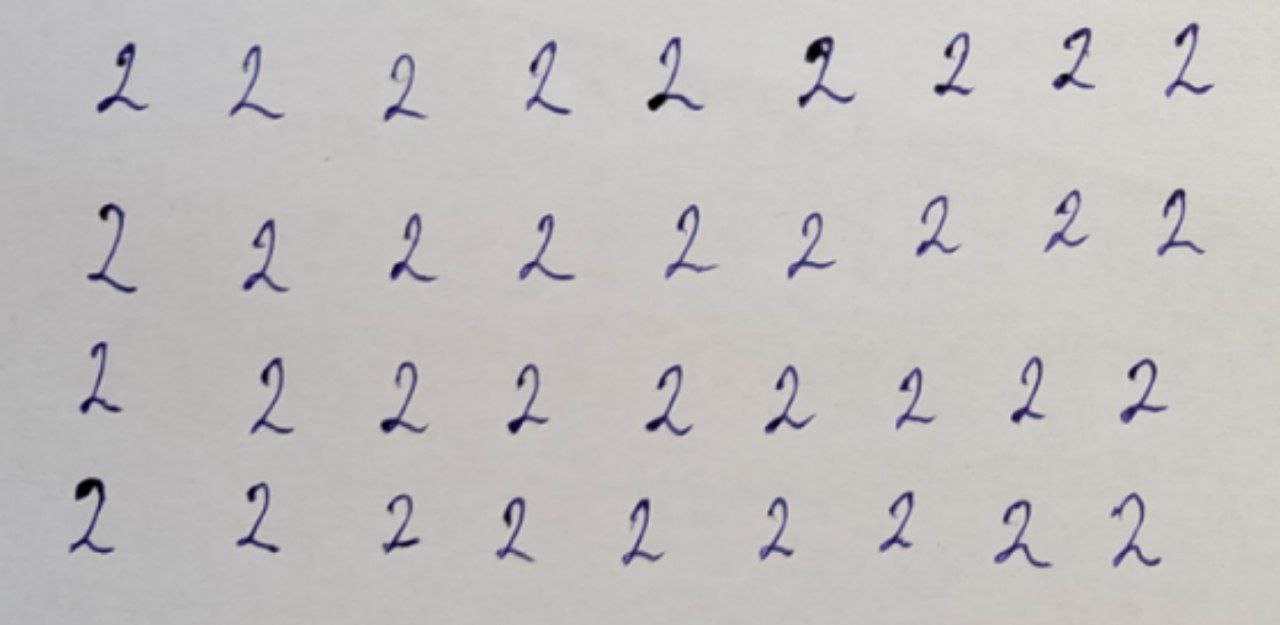 2 2 2 2 2 2 2 2 2
2 2 2 2 2 2 2 2 2
2 2 2 2 2 2 2 2 2
2 2 2 2 2 2 2 2 2